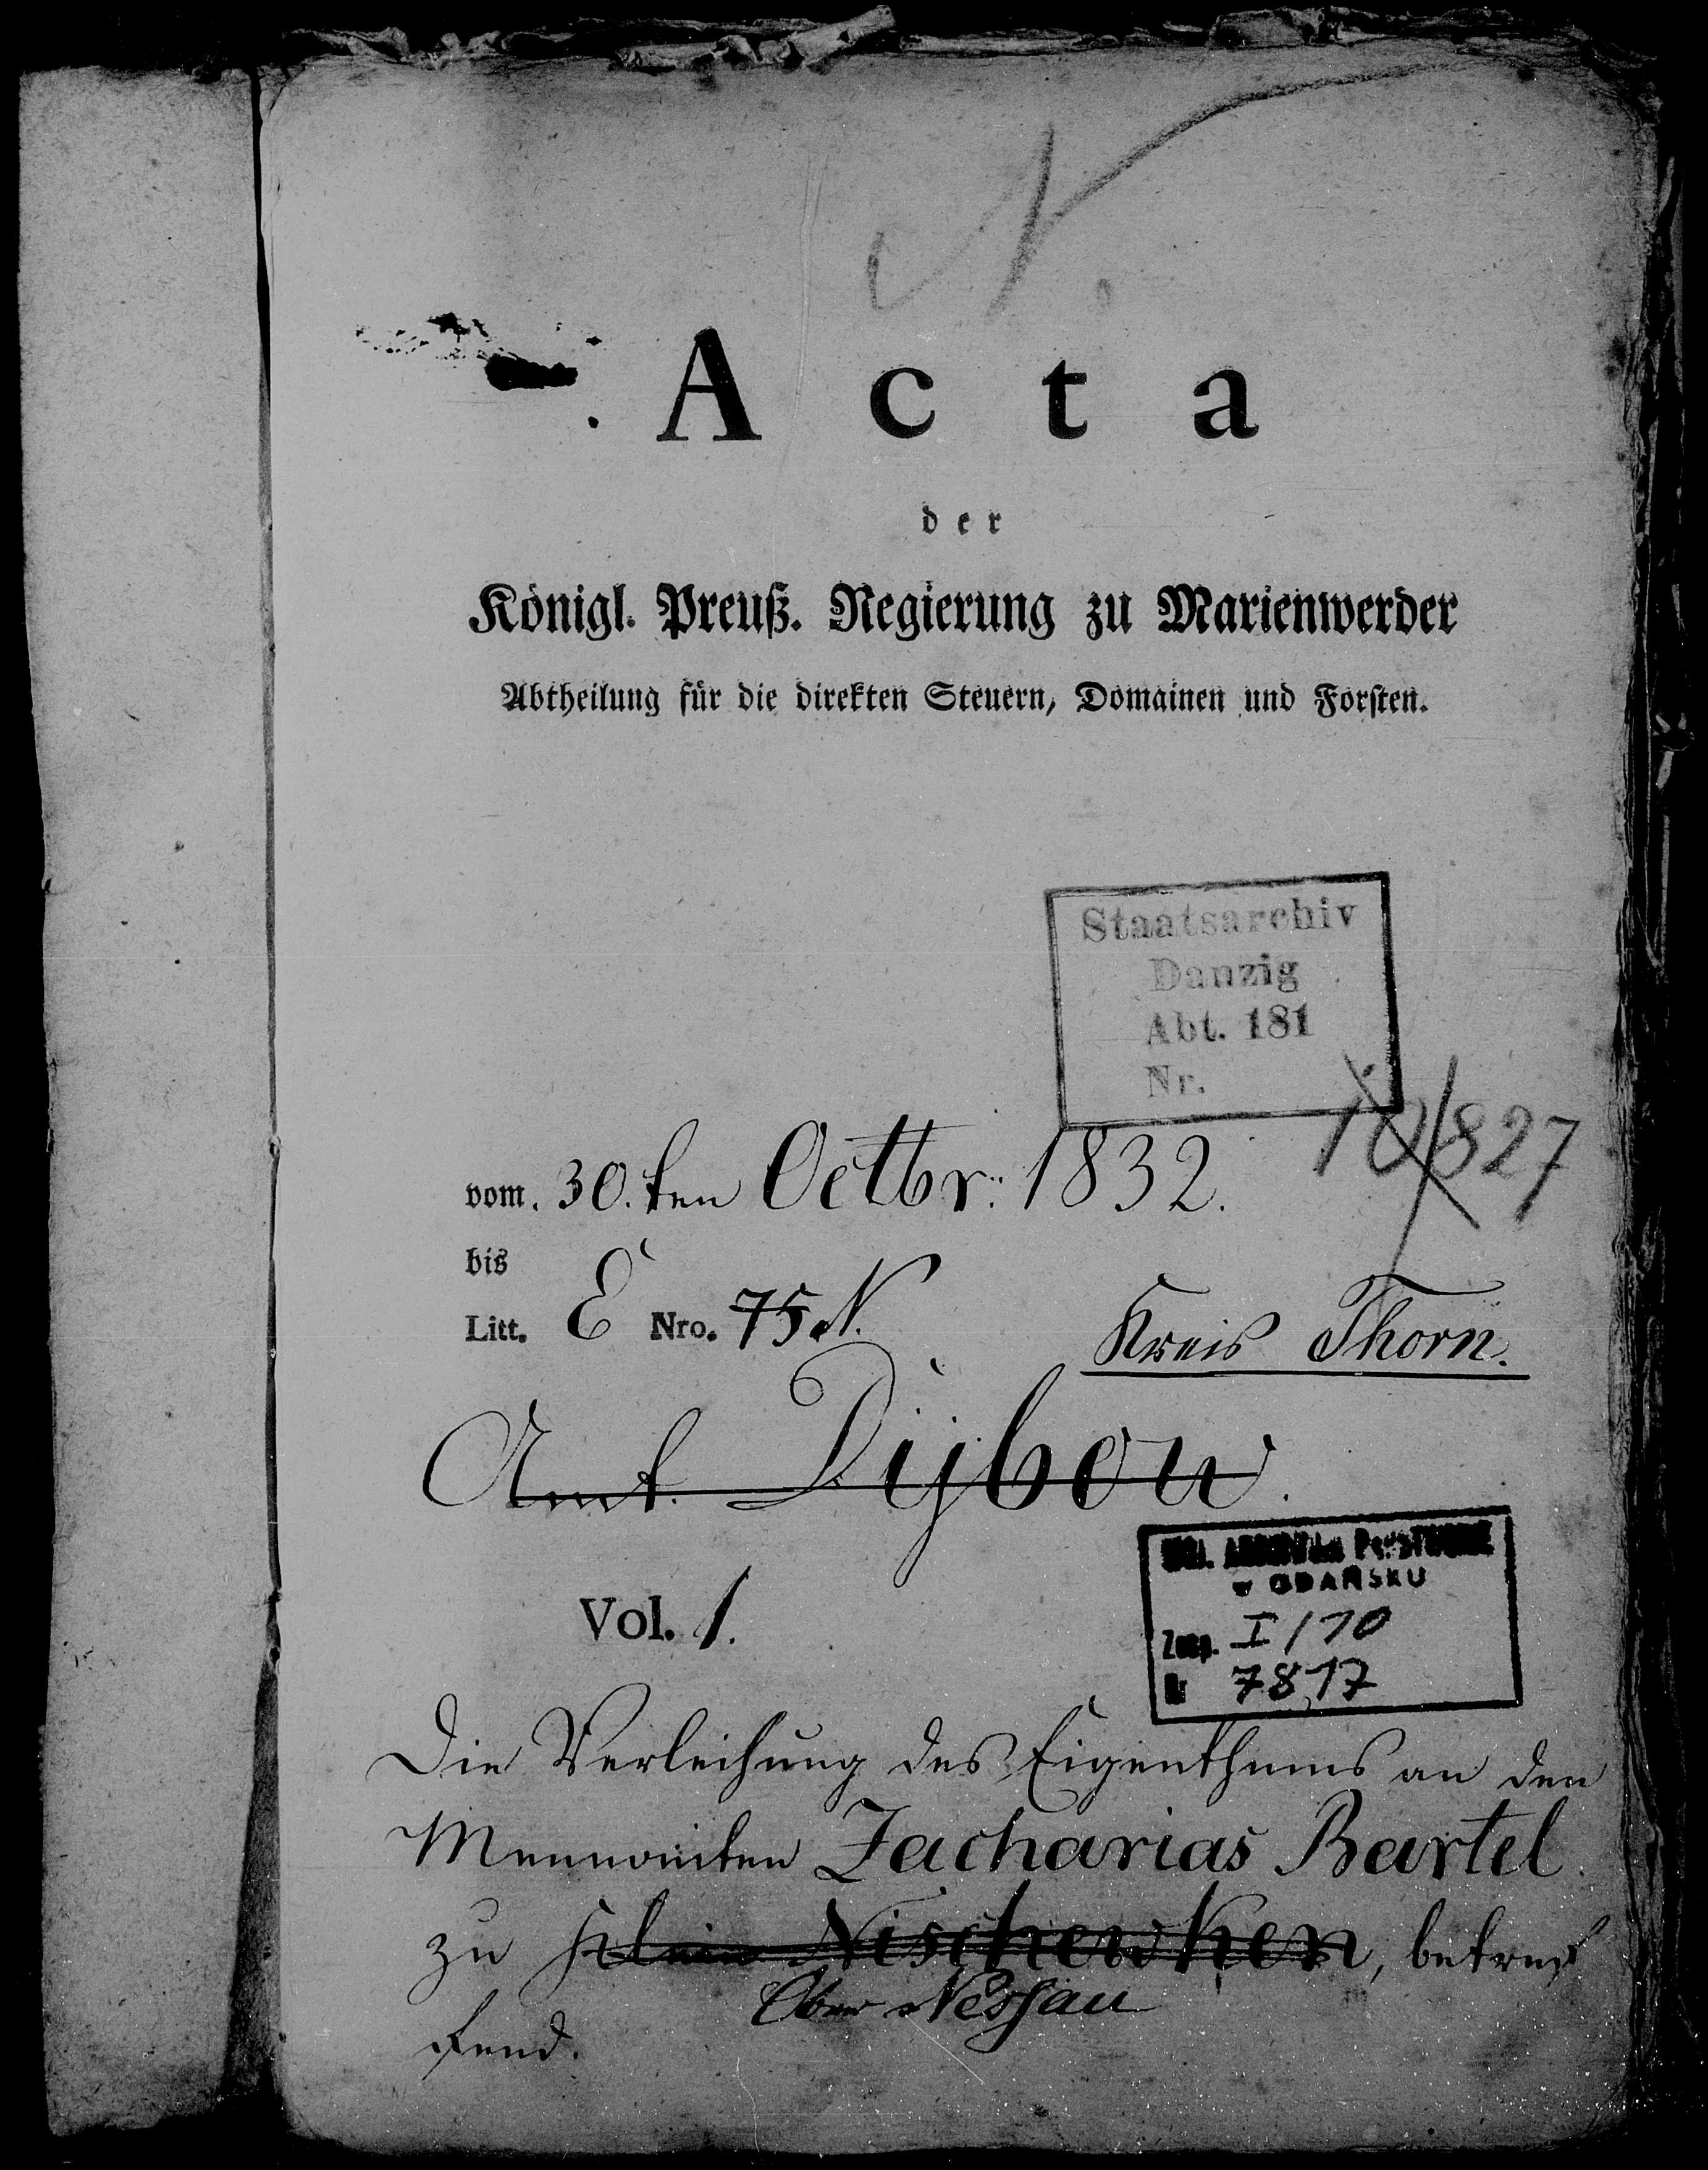 N.
Acta
der
Königl. Preuß. Regierung zu Marienwerder
Abtheilung für die direkten Steuern, Domainen und Forsten.
Staatsarchiv
Danzig
Abt. 181
Nr.
10827
vom. 30.ten Octbr: 1832.
bis
Litt. E Nro. 75 N.
Kreis Thorn.
Amt. Dÿbow.
Vol. 1.
Woj. Archiwum Państwowe
w GDAŃSKU
Zesp. I/10
Nr 7817
Die Verleihung des Eigenthums an den
Mennoniten Zacharias Bartel
zu Klein Nischewken, betref
Ober Nessau
fend.